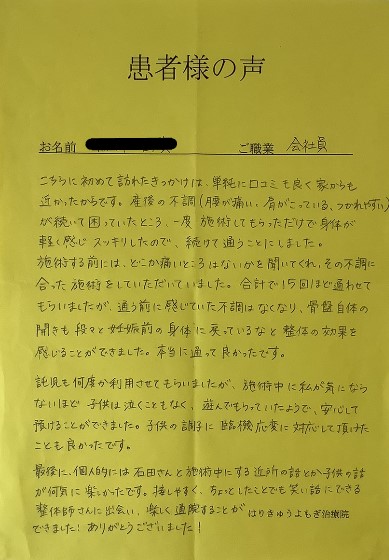 患者様の声
お名前 ご職業 会社員
こちらに初めて訪れたきっかけは、単純に口コミも良く家からも
近かったからです。産後の不調(腰が痛い、肩がこっている、つかれやすい)
が続いて困っていたところ、一度施術してもらっただけで身体が
軽く感じスッキリしたので、続けて通うことにしました。
施術する前には、どこか痛いところはないかを聞いてくれ、その不調に
合った施術をしていただいていました。合計で15回ほど通わせて
もらいましたが、通う前に感じていた不調はなくなり、骨盤自体の
開きも段々と妊娠前の身体に戻っているなと整体の効果を
感じることができました。本当に通って良かったです。
託児も何度か利用させてもらいましたが、施術中に私が気になら
ないほど子供は泣くこともなく、遊んでもらっていたようで、安心して
預けることができました。子供の調子に臨機応変に対応して頂けた
ことも良かったです。
最後に、個人的には石田さんと施術中にする近所の話とか子供の話
が何気に楽しかったです。接しやすく、ちょっとしたことでも笑い話にできる
整体師さんに出会い、楽しく通院することが はりきゅうよもぎ治療院
できました!ありがとうございました!